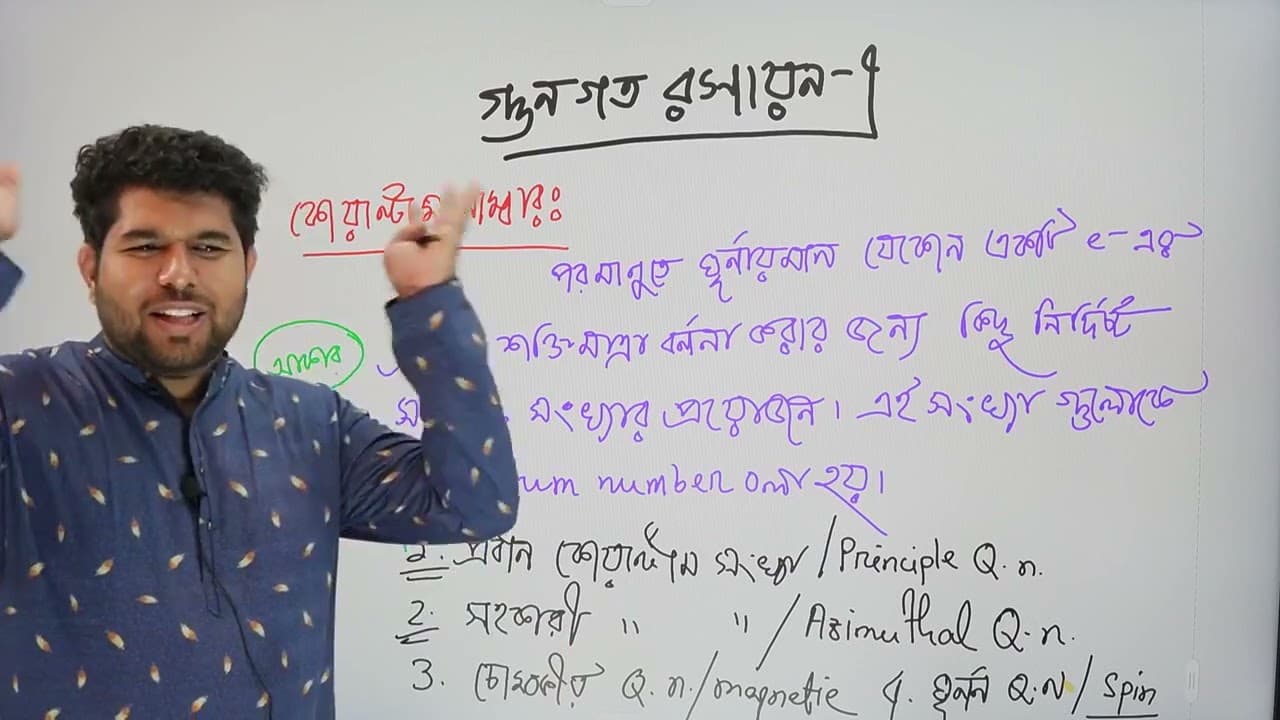 গুনগত রসায়ন-৭
কোয়ান্টাম নাম্বারঃ
পরমানুতে ঘূর্নায়মান যেকোন একটি e- এর
শক্তিমাত্রা বর্ননা করার জন্য কিছু নির্দিষ্ট
সংখ্যার প্রয়োজন। এই সংখ্যা গুলোকে
um number বলা হয়।
1. প্রধান কোয়ান্টাম সংখ্যা / Principle Q.n.
2. সহকারী " " / Azimuthal Q.n.
3. চৌম্বকীয় Q.n./magnetic 4. ঘূর্নন Q.N / Spin